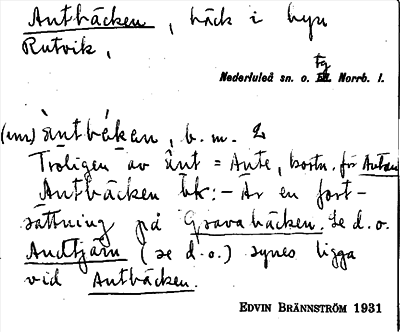 Antbäcken, bäck i byn
Rutvik,
tg
Nederluleå sn. o. Norrb. l.
(um) àntbä́kan, b. m. 2
Troligen av ánt = Ante, kortn. för Antan
Antbäcken bk: – Är en fort-
sättning på Gravabäcken. Se d. o.
Andtjärn (se d. o.) synes ligga
vid Antbäcken.
EDVIN BRÄNNSTRÖM 1931